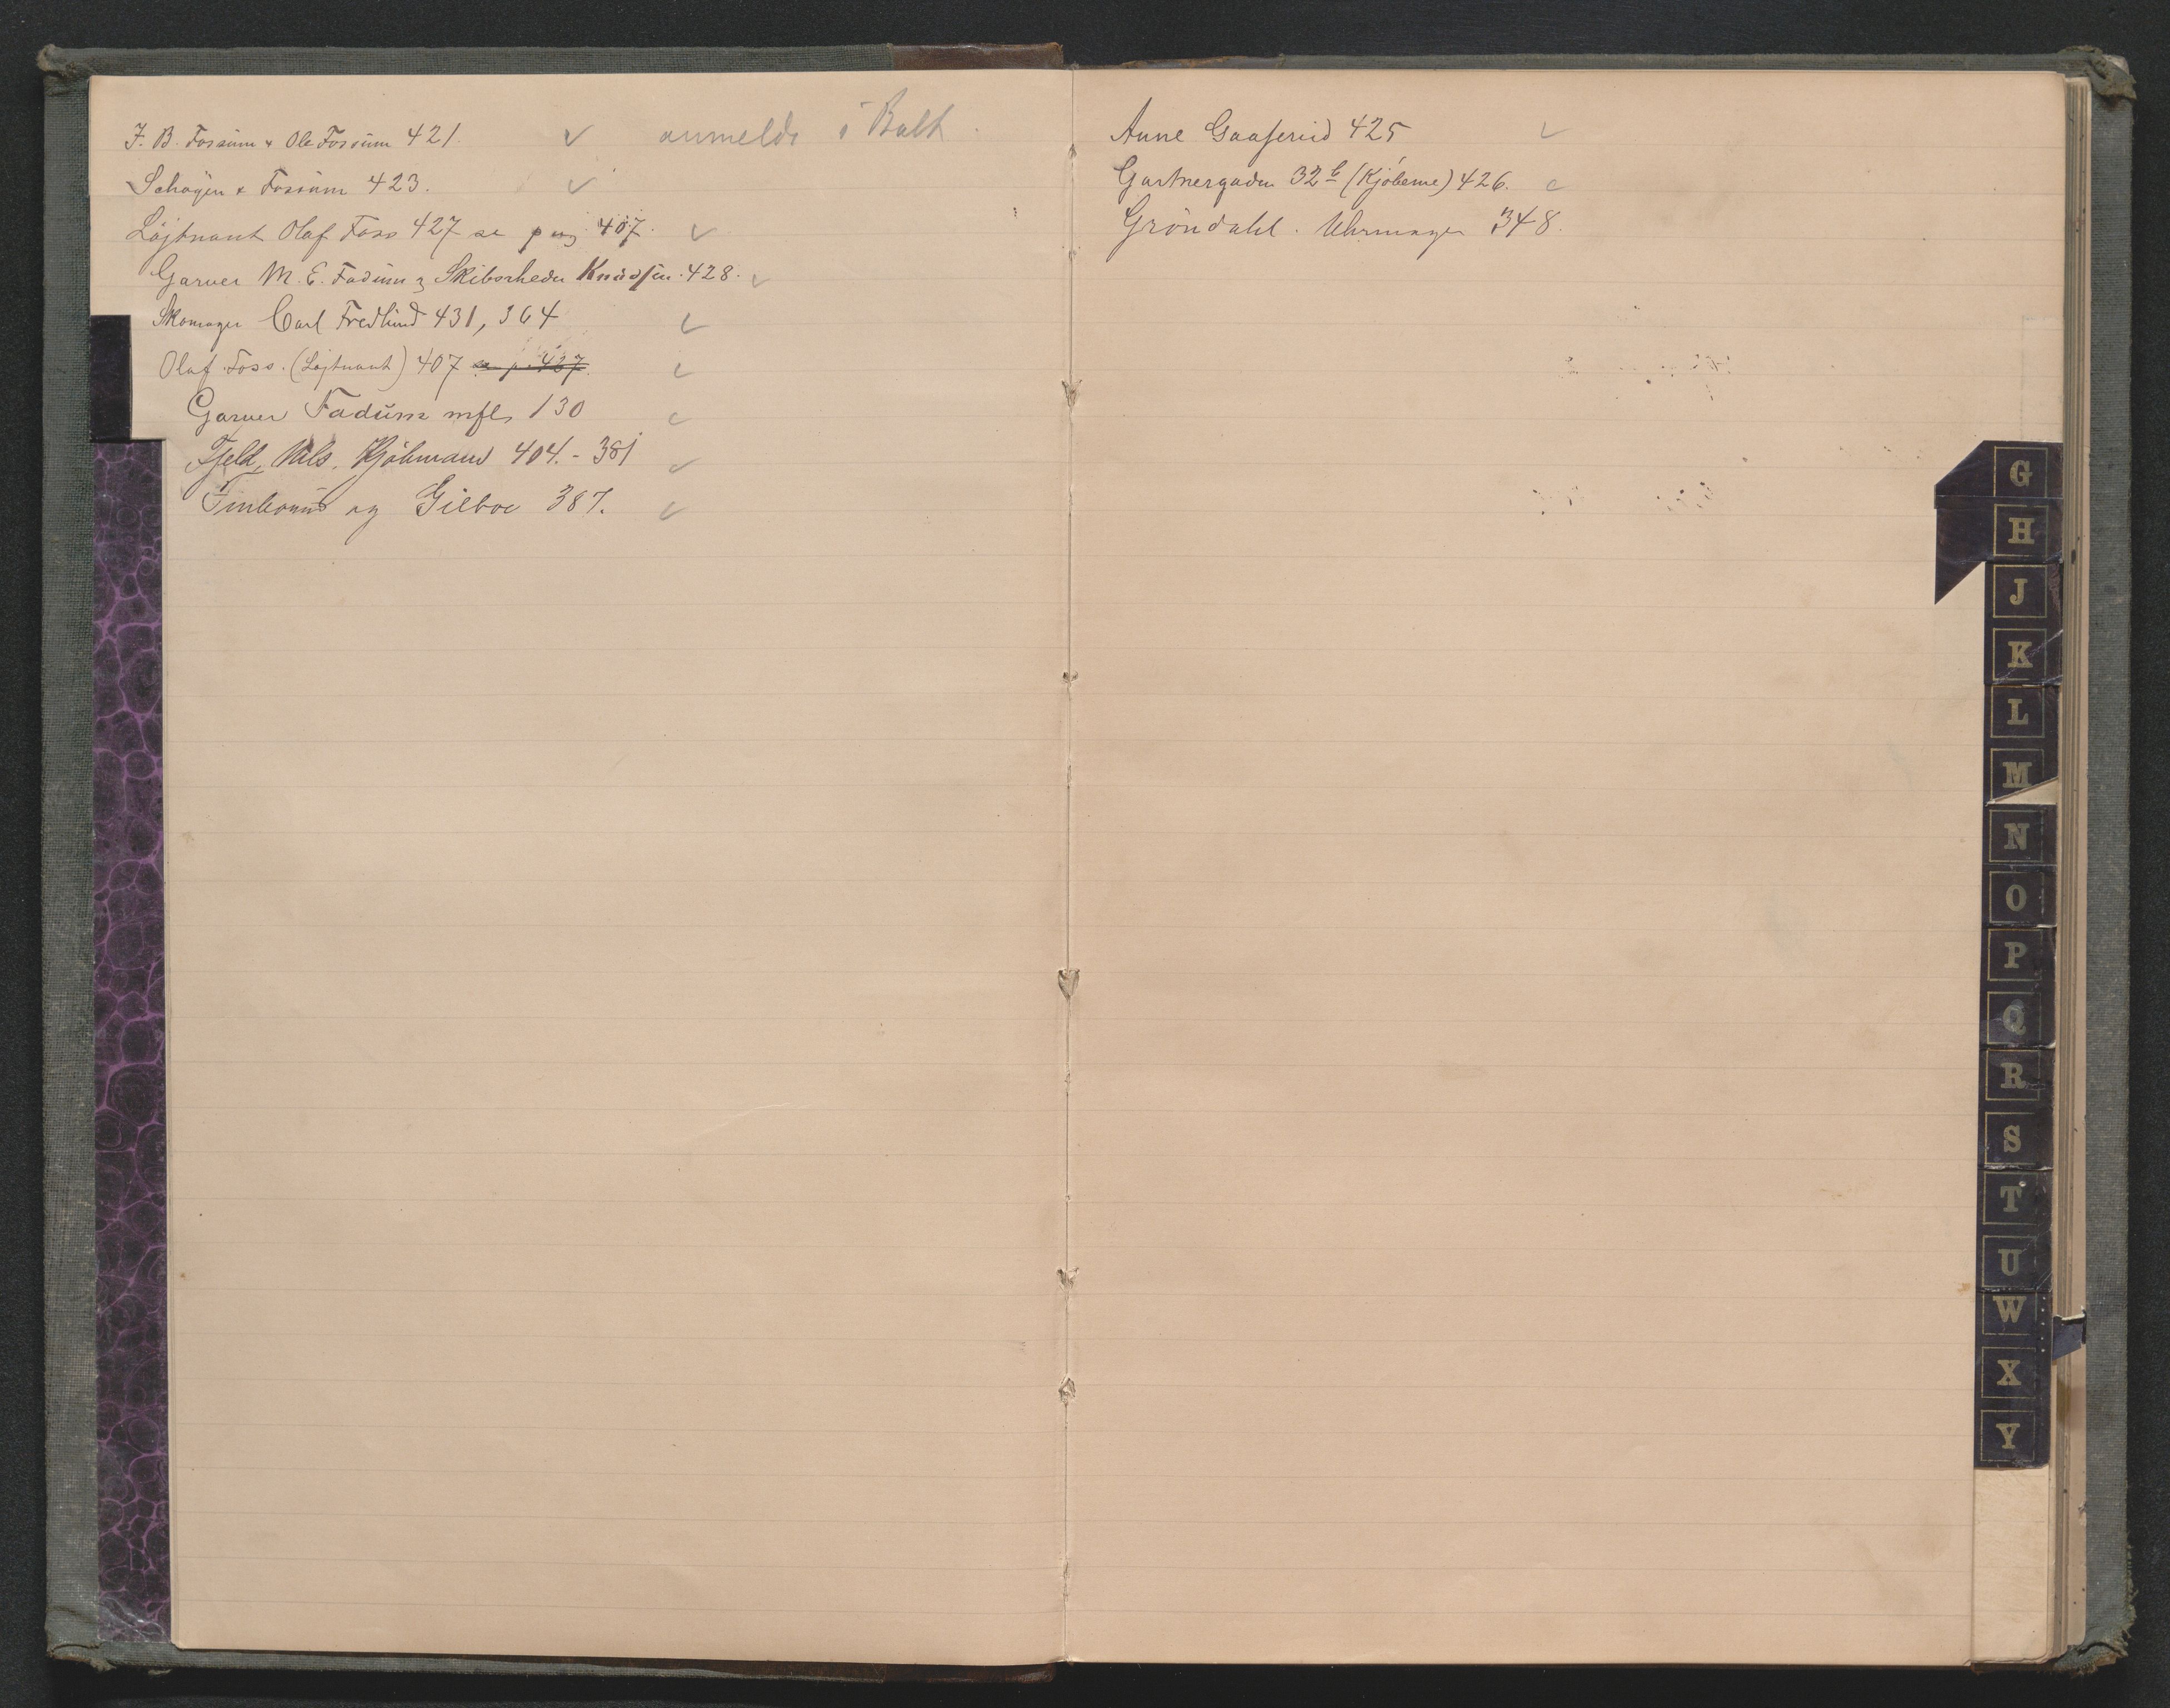 F. B. Fossum & Ole Fossum 421. ✓ anmeldt i Balt.
Schøyen & Fossum 423. ✓
Løjtnant Olaf Foss 427 se pag 407. ✓
Garver M. E. Fadum & Skibsrheder Knudsen. 428. ✓
Skomager Carl Fredlund 431, 364 ✓
Olaf Foss. (Løjtnant) 407 se p. 427 ✓
Garver Fadum mfl. 130 ✓
Fjeld, Nils. Kjøbmand 404. - 381 ✓
og 387. ✓
Anne Gaaserud 425 ✓
Gartnergaden 32 b (Kjøberne) 426. ✓
Gröndahl. Uhrmager 348.
G
H
J
K
L
M
N
O
P
Q
R
S
T
U
W
X
Y